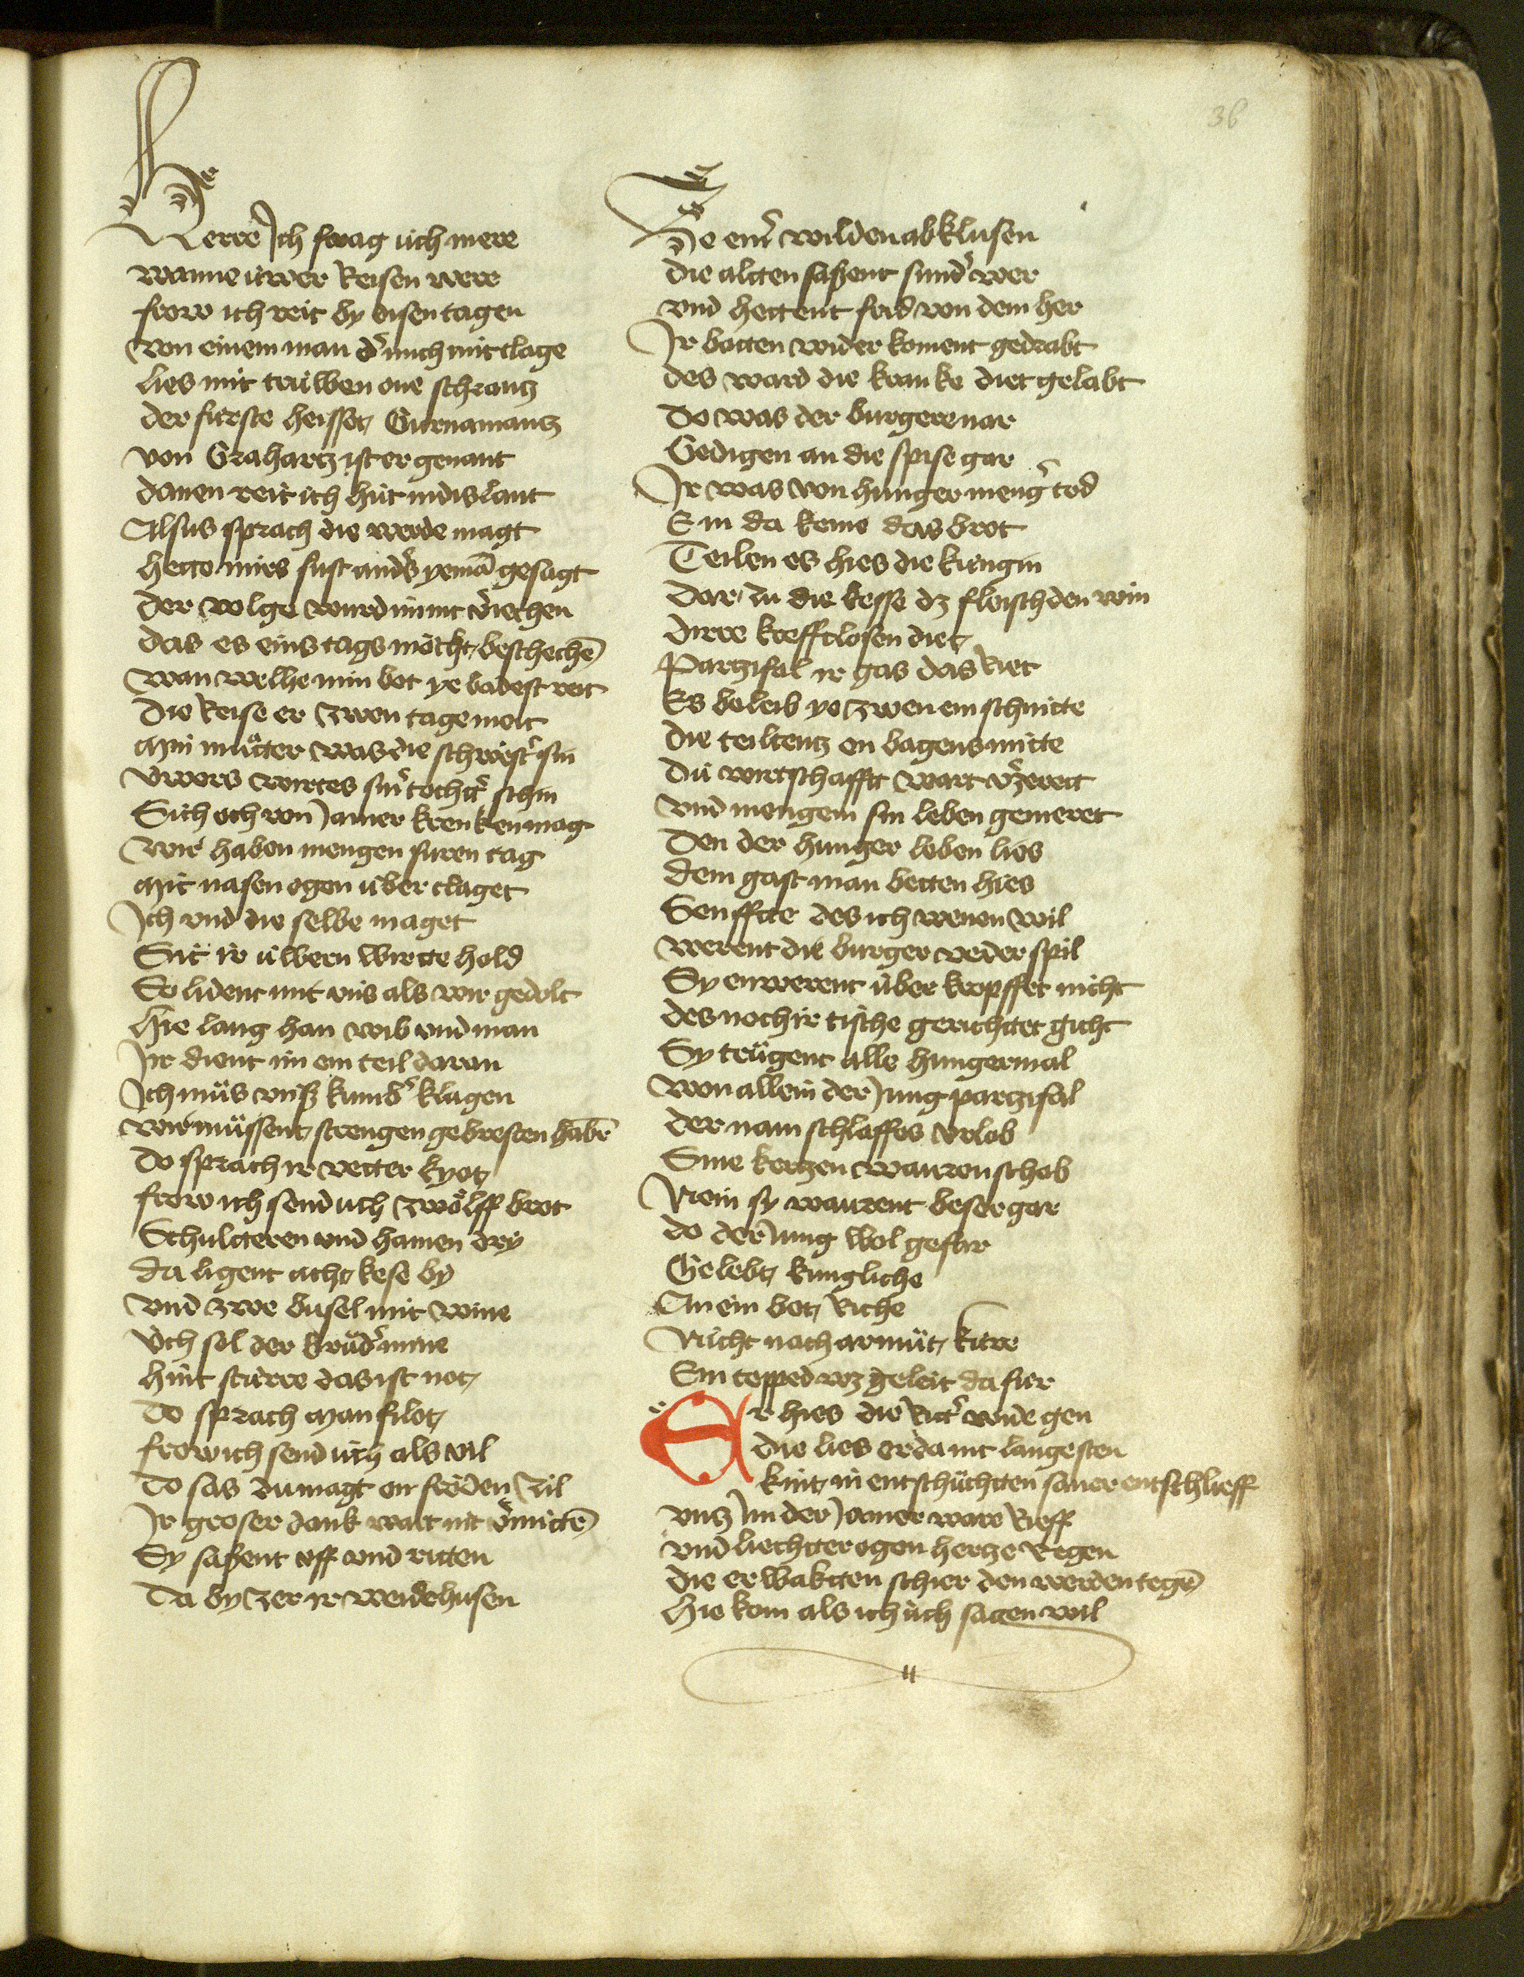 36
Herre Ich frag üch mere
wanne üwer keisen were
frow ich reit by disen tagen
von einem man dˀ mich mit clage
lies mit trüwen one schrantz
der fürste heisset Gurnamantz
von Grahartz ist er genant
danen reit ich hüt in dis lant
Alsus sprach die werde magt
hette mirs sust andˀs yemā gesagt
der volge wurd im nit v̾iechen
das es eins tags möcht beschechē
wan welhe min bot ye badest reit
die Reise er zwen tage meit
Min müter was die schwestˀ sin
üwers wirtes sinˀ tochtˀ schin
Sich och von Jamer krenken mag
wir haben mengen suren tag
Mit nasen ogen über claget
Ich vnd die selbe maget
Sit ir üwern wirtte hold
So lident mit vns als wir gedolt
hie lang han wib vnd man
Ir dient im ein teil daran
Ich müs vnsz kumbˀ klagen
wir müssent strengen gebresten habē
Do sprach ir vetter kyot
frow ich send uch zwölff brot
Schultteren vnd hamen dry
da ligent acht kese by
vnd zwe busel mit wine
üch sol der brüdˀ mine
hint stürre das ist not
Do sprach Manfilot
frow ich send üch als vil
Do sas du magt on fröden zil
Ir groser dank wart nit v̾mittē
Sy sassent uff vnd ritten
Da by zer ir weidehusen
Ze einˀ wilden abklusen
die altten sassent sundˀ wer
vnd hettent frid von dem her
Ir botten wider koment gedrabt
des ward die kranke diet gelabt
Do was der burgere nar
Gedigen an die spise gar
Ir was von hunger mengˀ tod
E in da keme das brot
Teilen es hies die kungin
Dar zu die kesse dz fleisch den win
dirre krefftlosen diet
Partzifal ir gas das Riet
Es beleib yo zwen ein schnitte
die teiltentz on bagens mitte
du wirtschafft wart v̾zeret
vnd mengem sin leben gemeret
Den der hunger leben lies
dem gast man betten hies
Senfftte des ich wenen wil
werent die burger veder spil
Sy enwerent über kropffet nicht
des noch ir tische gerichttet gicht
Sy trügent alle hungermal
won allein der Jung partzifal
der nam schlaffes vrlob
Sine kertzen warren schob
Nein sy waurent beser gar
do der Jung wol gefar
Gelebt kungliche
An ein bot Riche
Nücht nach armüt kürre
Ein tepped wz geleit da für
Er hies die Rittˀ wide gen
die lies er da nit langesten
kint in entschüchtten saner entschlieff
vntz Im der Jamer ware Rieff
vnd liechtter ogen hertze Regen
die er wakten schier den werden tegē
hie kom als ich üch sagen wil